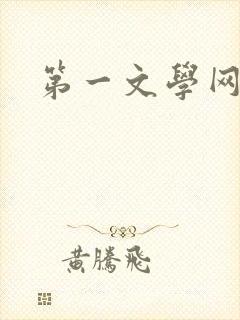 第一文學网
黄騰飛